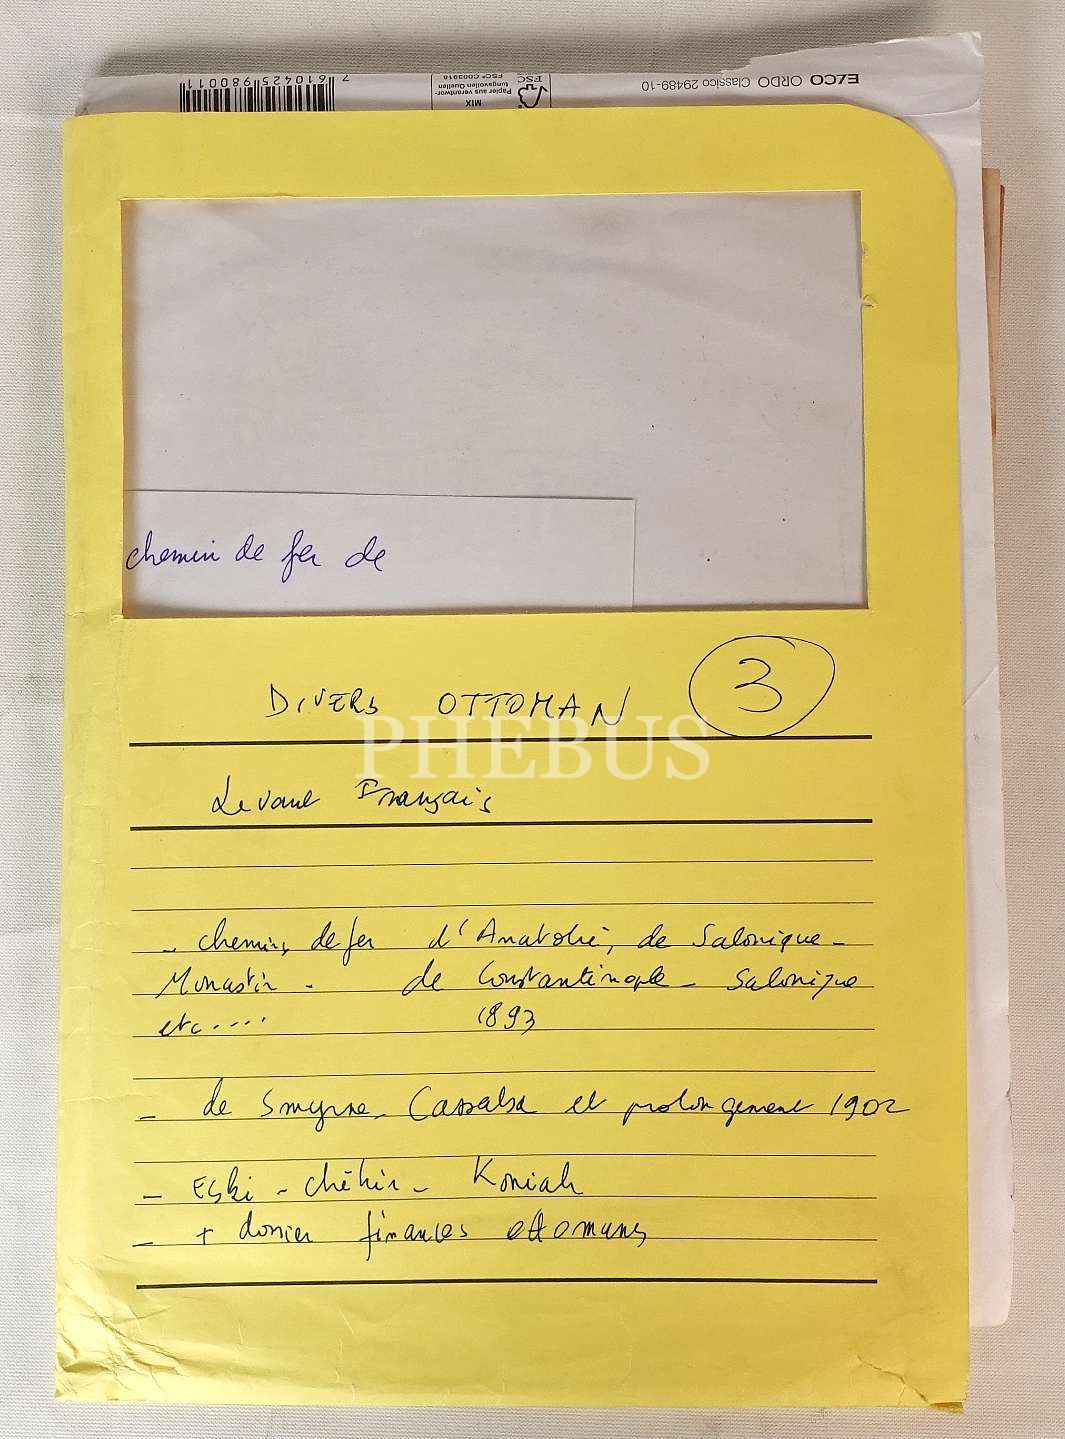 7610425980011
MIX
Papier aus verantwor-
tungsvollen Quellen
FSC® C003918
FSC
ELCO ORDO Classico 29489-10
chemin de fer de
DIVERS OTTOMAN 3
PHEBUS
Levant Français
- chemins de fer d'Anatolie, de Salonique-
Monastir - de Constantinople - Salonique
etc.... 1893
- de Smyrne - Cassaba et prolongement 1902
- Eski - chéhir - Koniah
- + dossier finances ottomanes